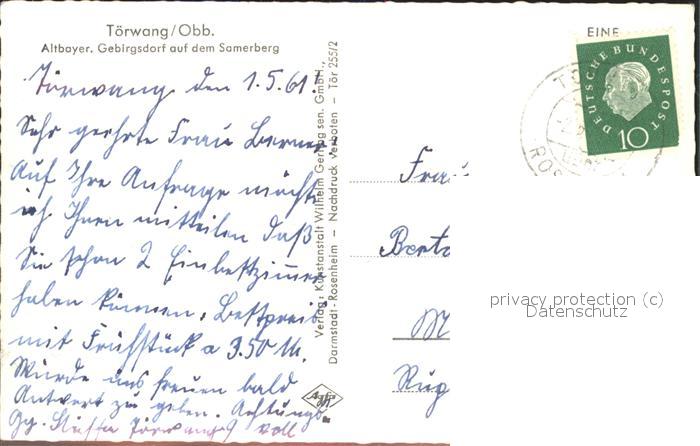 Törwang/Obb.
Altbayer. Gebirgsdorf auf dem Samerberg
Törwang, den 1.5.61.
Sehr geehrte Frau Berner.
Auf Ihre Anfrage möchte
ich Ihnen mitteilen daß
Sie schon 2 Einbettzimmer
haben können. Bettpreis
mit Frühstück a 3.50 M.
Würde uns freuen bald
Antwort zu geben. Achtungs-
voll
Törwang 9
Verlag: Kunstanstalt Wilhelm Gerling sen. GmbH.,
Darmstadt-Rosenheim — Nachdruck verboten — Tör 255/2
Agfa
EINE
DEUTSCHE BUNDESPOST
10
Frau
Berta
M
Rug
privacy protection (c)
Datenschutz